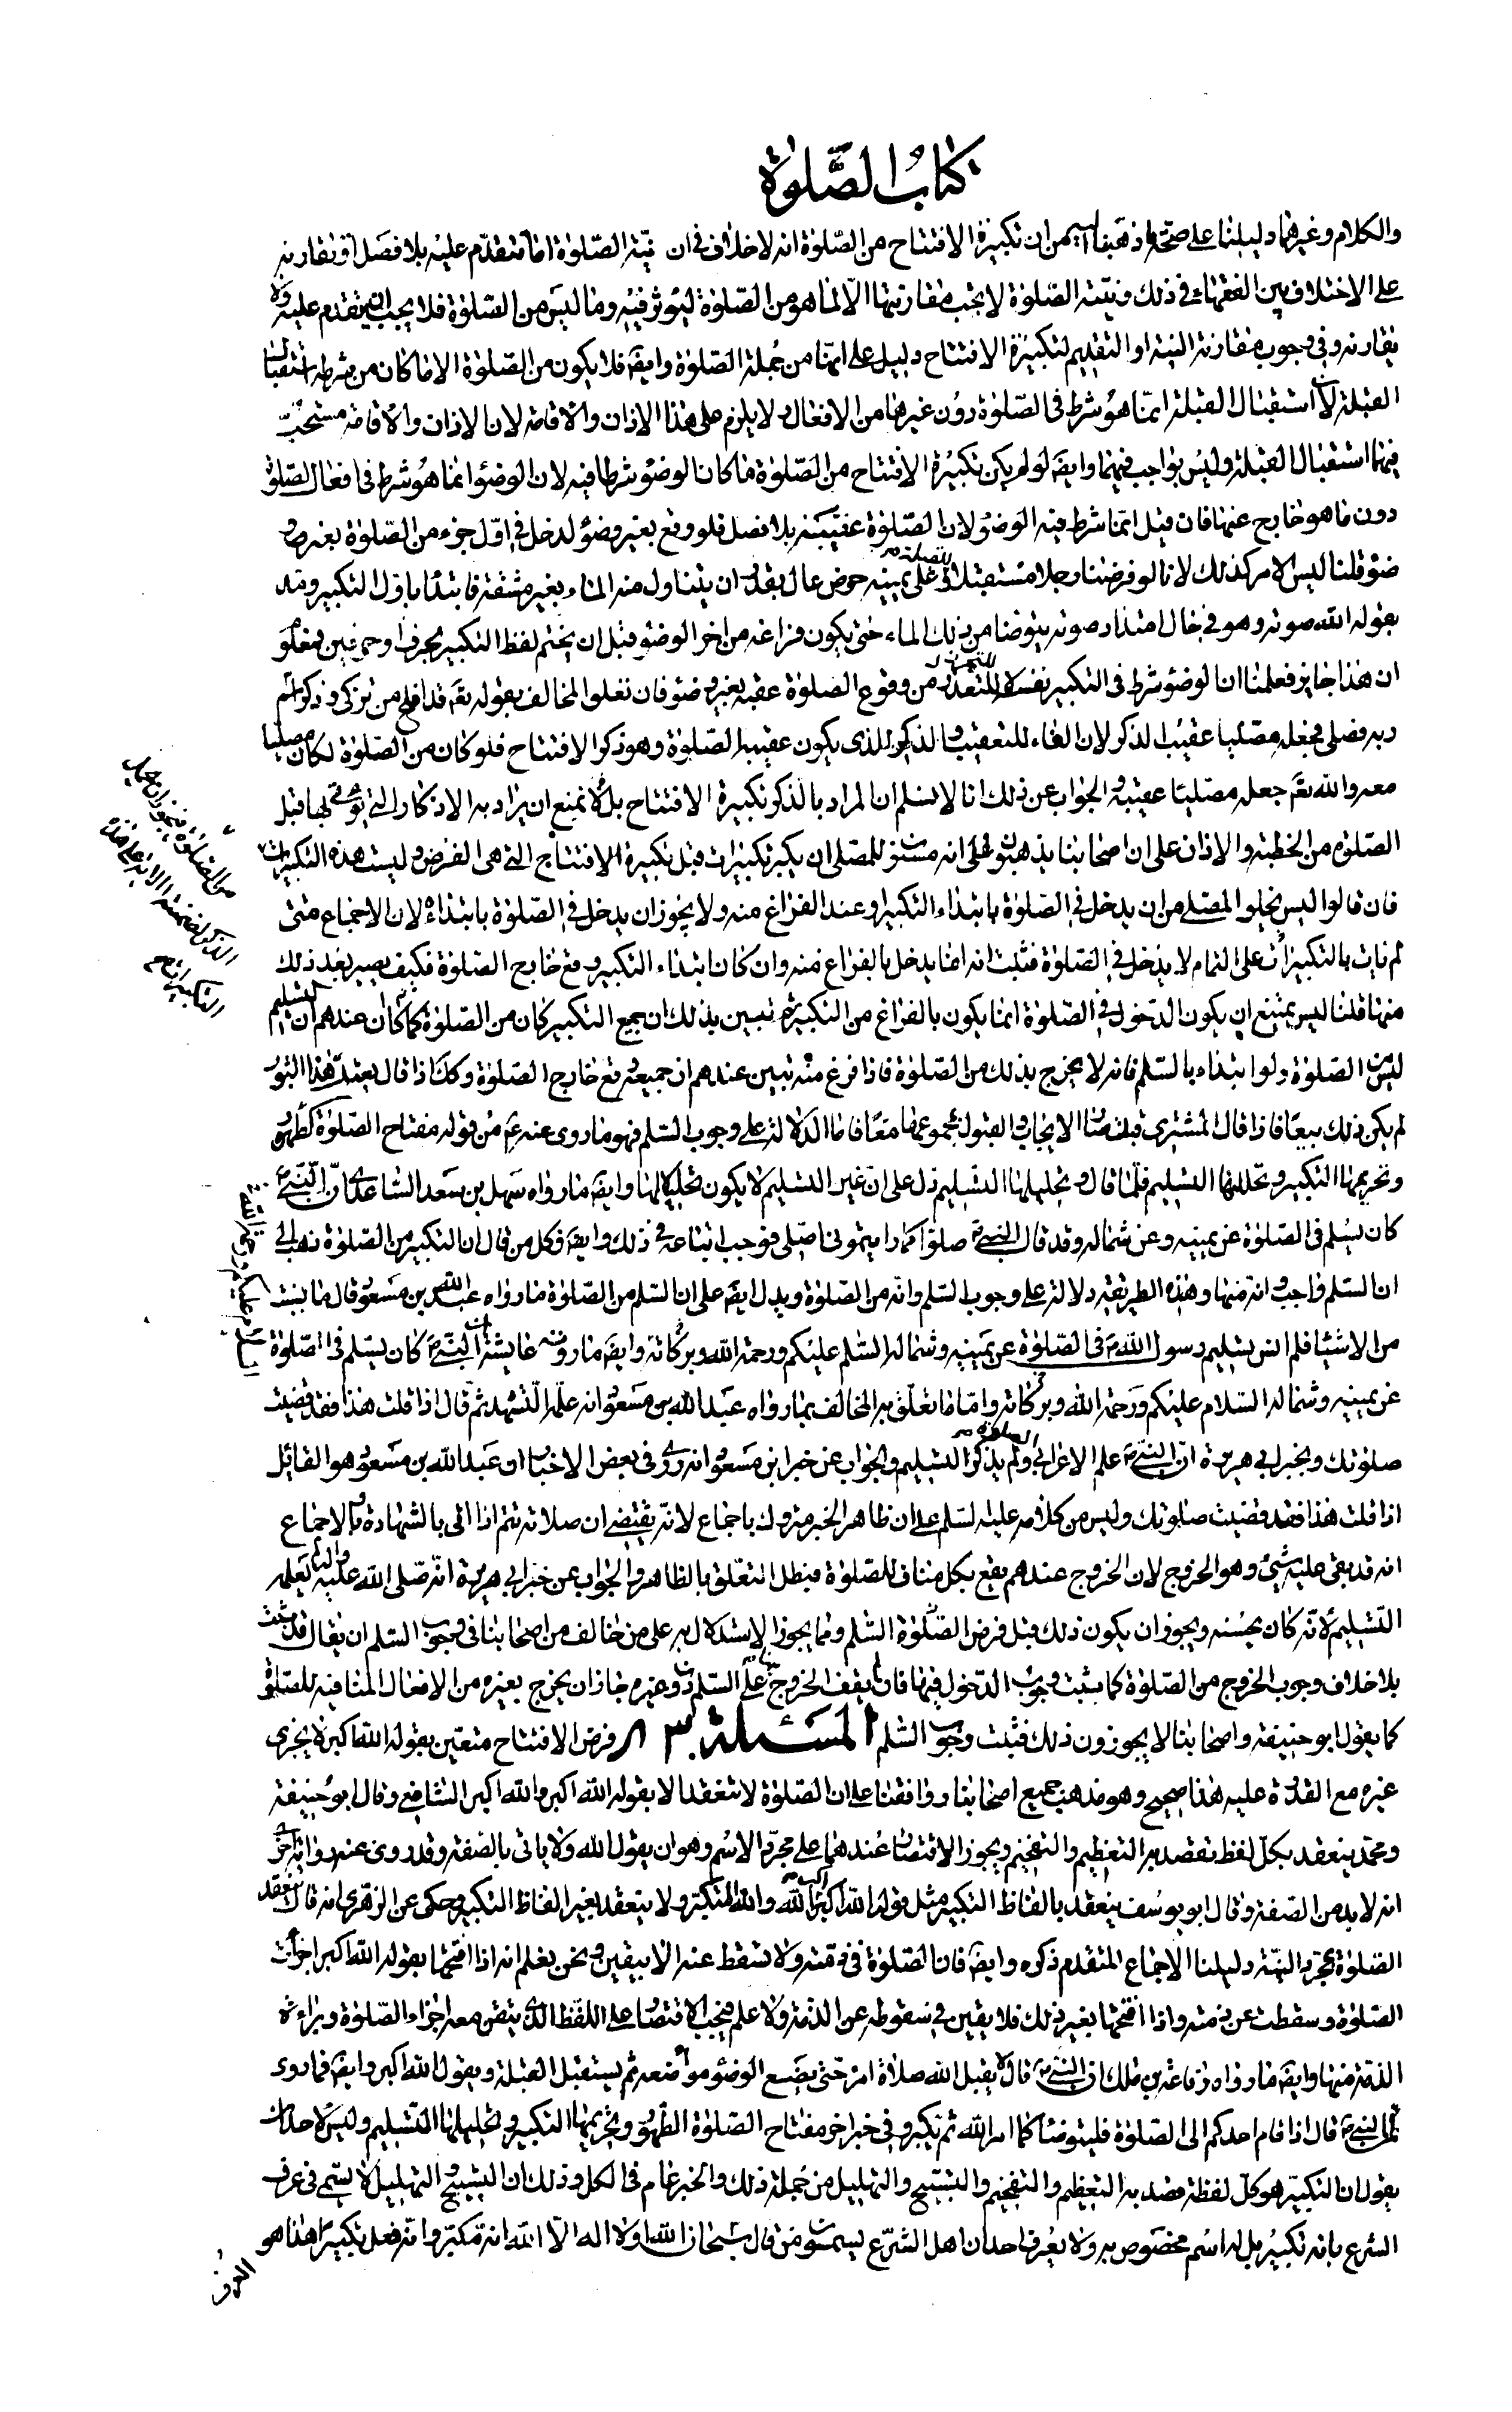 كتاب الصّلوة
والكلام وغيرهما دليلنا على صحّة ما ذهبنا اليه من ان تكبيرة الافتتاح من الصّلوة انه لا خلاف فى ان نيّة الصّلوة امّا تتقدّم عليه بلا فصل او تقارنه
على الاختلاف بين الفقهاء فى ذلك ونيّة الصّلوة لا يجب مقارنتها الّا لما هو من الصّلوة ليؤثر فيه وما ليس من الصّلوة فلا يجب ان يتقدم عليه ولا
يقارنه وفى وجوب مقارنة النية او التقديم لتكبيرة الافتتاح دليل على انّها من جملة الصّلوة وايضَ فلا يكون من الصّلوة الا ما كان من شرطه استقبال
القبلة لانّ استقبال القبلة انّما هو شرط فى الصّلوة دون غيرها من الافعال ولا يلزم على هذا الاذان والاقامة لان الاذان والاقامة مستحبّ
فيهما استقبال القبلة وليس بواجب فيهما وايضَ لو لم يكن تكبيرة الافتتاح من الصّلوة ما كان الوضؤ شرطا فيه لان الوضؤ انما هو شرط فى افعال الصّلوة
دون ما هو خارج عنها فان قيل انّما شرط فيه الوضؤ لان الصّلوة عقيبه بلا فصل فلو وقع بغير وضؤ لدخل فى اوّل جزء من الصّلوة بغير و
ضؤ قلنا ليس الامر كذلك لانا لو فرضنا رجلا مستقبلا للقبلة على يمينه حوض عال يقدر ان يتناول منه الماء بغير مشقة فابتدأ باوّل التكبير ومدّ
بقوله الله صوته وهو فى حال امتداد صوته يتوضا من ذلك الماء حتى يكون فراغه من اخر الوضؤ قبل ان يختم لفظ التكبير بحرف او حرفين فمعلوم
ان هذا جايز فعلمنا ان الوضؤ شرط فى التكبير نفسه لا للتعدد من وقوع الصلوة عقبه بغير وضؤ فان تعلّق المخالف بقوله تعَ قد افلح من تزكى وذكر اسم
ربه فصلى فجعله مصّليا عقيب الذكر لان الفاء للتعقيب والذكر الذى يكون عقيبه الصّلوة وهو ذكر الافتتاح فلو كان من الصّلوة لكان مصليا
معه والله تعَ جعله مصليا عقيبه والجواب عن ذلك انا لا نسلم ان المراد بالذكر تكبيرة الافتتاح بل لا نمنع ان يراد به الاذكار التى يؤتى بها قبل
الصلوة من الخطبة والاذان على ان اصحابنا يذهبون الى انه مسنون للمصلى ان يكبر تكبيرات قبل تكبيرة الافتتاح التى هى الفرض وليست هذه التكبيرات
من الصّلوة فيجوز ان يحمل
الذكر الذى تضمنته الاية على هذه
التكبيرات
فان قالوا ليس يخلوا المصّلى من ان يدخل فى الصّلوة بابتداء التكبير او عند الفراغ منه ولا يجوز ان يدخل فى الصّلوة بابتدائه لان الاجماع متى
لم يات بالتكبيرات على التمام لا يدخل فى الصّلوة فثبت انه انما يدخل بالفراغ منه وان كان ابتداء التكبير وقع خارج الصلوة فكيف يصير بعد ذلك
منها قلنا ليس يمتنع ان يكون الدّخول فى الصّلوة انما يكون بالفراغ من التكبير ثم تبين بذلك ان جميع التكبير كان من الصّلوة كما كان عندهم ان التسليم
ليس من الصّلوة ولو ابتداء بالسّلم فانه لا يخرج بذلك من الصّلوة فاذا فرغ منه تبين عندهم ان جميعه وقع خارج الصّلوة وككَ اذا قال بعتك هذا الثوب
لم يكن ذلك بيعا فاذا قال المشترى قبلت صار الايجاب والقبول بمجموعهما معًا فاما الدّلالة على وجوب السّلم فهو ما روى عنه عَم من قوله مفتاح الصّلوة الطّهور
وتحريمها التكبير وتحليلها التّسليم فلمّا قال وتحليلها التّسليم دلّ على ان غير التسليم لا يكون تحليلا لها وايضَ ما رواه سهل بن سعد السّاعدى انّ النّبى صَ
كان يسلم فى الصّلوة عن يمينه وعن شماله وقد قال النبىّ صَ صلّوا كما رايتمونى اصلى فوجب اتباعه فى ذلك وايضَ فكل من قال ان التكبير من الصّلوة ذهب الى
ان السّلم واجب وانه منها وهذه الطريقة دلالة على وجوب السّلم وانّه من الصّلوة ويدل ايضَ على ان السّلم من الصّلوة ما رواه عبد الله بن مسعود قال ما نسيت
من الاشيئا فلم انس تسليم رسول الله صَ فى الصّلوة عن يمينه وشماله السّلم عليكم ورحمة الله وبركاته وايضَ ما روته عايشة ان النّبى صَ كان يسلم فى الصّلوة
عن يمينه وشماله السّلام عليكم ورحمة الله وبركاته وامّا ما تعلّق به المخالف بما رواه عبد الله بن مسعود انه علّمه التّشهد ثم قال اذا قلت هذا فقد قضيت
صلوتك وبخبر ابى هريرة انّ النّبى صَ علم الاعرابى الصلوة ولم يذكر التسليم والجواب عن خبر ابن مسعود انه روى فى بعض الاخبار ان عبد الله بن مسعود هو القائل
اذا قلت هذا فقد قضيت صلوتك وليس من كلامه عليه السّلم على ان ظاهر الخبر متروك باجماع لانّه يقتضى ان صلاته تتم اذا اتى بالشهادة وبالاجماع
انه قد بقى عليه شئ وهو الخروج لان الخروج عندهم يقع بكل مناف للصّلوة فبطل التعلّق بالظاهر والجواب عن خبر ابى هريرة انّه صلّى الله عليه واله لم يعلمه
التّسليم لانّه كان يحسنه ويجوز ان يكون ذلك قبل فرض الصّلوة السّلم ومما يجوز الاستدلال به على من خالف من اصحابنا فى وجوب السّلم ان يقال قد ثبت
بلا خلاف وجوب الخروج من الصّلوة كما ثبت وجوب الدّخول فيها فان لم يقف الخروج منها على السّلم دون غيره جاز ان يخرج بغيره من الافعال المنافية للصّلوة
كما يقول ابو حنيفة واصحابنا لا يجوزون ذلك فثبت وجوب السّلم المسئلة ٨٣ فرض الافتتاح متعين بقوله الله اكبر لا يجزى
غيره مع القدرة عليه هذا صحيح وهو مذهب جميع اصحابنا ووافقنا على ان الصّلوة لا تنعقد الا بقوله الله اكبر والله اكبر الشافعى وقال ابو حنيفة
ومحمّد ينعقد بكلّ لفظ تقصد به التعظيم والتفخيم ويجوز الاقتصار عندهما على مجرّد الاسم وهو ان يقول الله ولا ياتى بالصّفة وقد روى عنه رواية اخرى
انه لا بد من الصّفة وقال ابو يوسف ينعقد بالفاظ التكبير مثل قوله الله اكبر الله الاكبر والله المتكبّر ولا ينعقد بغير الفاظ التكبير وحكى عن الزهرى انه قال تنعقد
الصّلوة بمجرّد النيّة دليلنا الاجماع المتقدم ذكره وايضَ فان الصّلوة فى ذمته ولا تسقط عنه الا بيقين ونحن نعلم انه اذا افتتحها بقوله الله اكبر اجزأت
الصّلوة وسقطت عن ذمته واذا افتتحها بغير ذلك فلا يقين فى سقوطه عن الذمة ولا علم فيجب الاقتصار على اللفظ الذى يتيقن معه اجزاء الصّلوة وبراءة
الذمة منها وايضَ ما رواه رفاعة بن مالك ان النّبى صَ قال لا يقبل الله صلاة امرء حتى يضع الوضؤ مواضعه ثم يستقبل القبلة ويقول الله اكبر وايضَ فما روى
عن النبى صَ قال اذا قام احدكم الى الصّلوة فليتوضا كما امر الله ثم يكبر وفى خبر اخر مفتاح الصّلوة الطّهور وتحريمها التكبير وتحليلها التّسليم وليس لاحد ان
يقول ان التكبير هو كلّ لفظة قصد بها التعظيم والتفخيم والتسبيح والتهليل من جملة ذلك والخبر عام فى الكل وذلك ان التّسبيح والتهليل لا يسمّى فى عرف
الشرع بانه تكبير بل له اسم مخصوص به ولا يعرف احد ان اهل الشّرع يسمّون من قال سبحان الله او لا اله الّا الله انه مكبّر وانّه فعل تكبيرًا هذا هو
العرف
السلام عليكم ورحمة الله